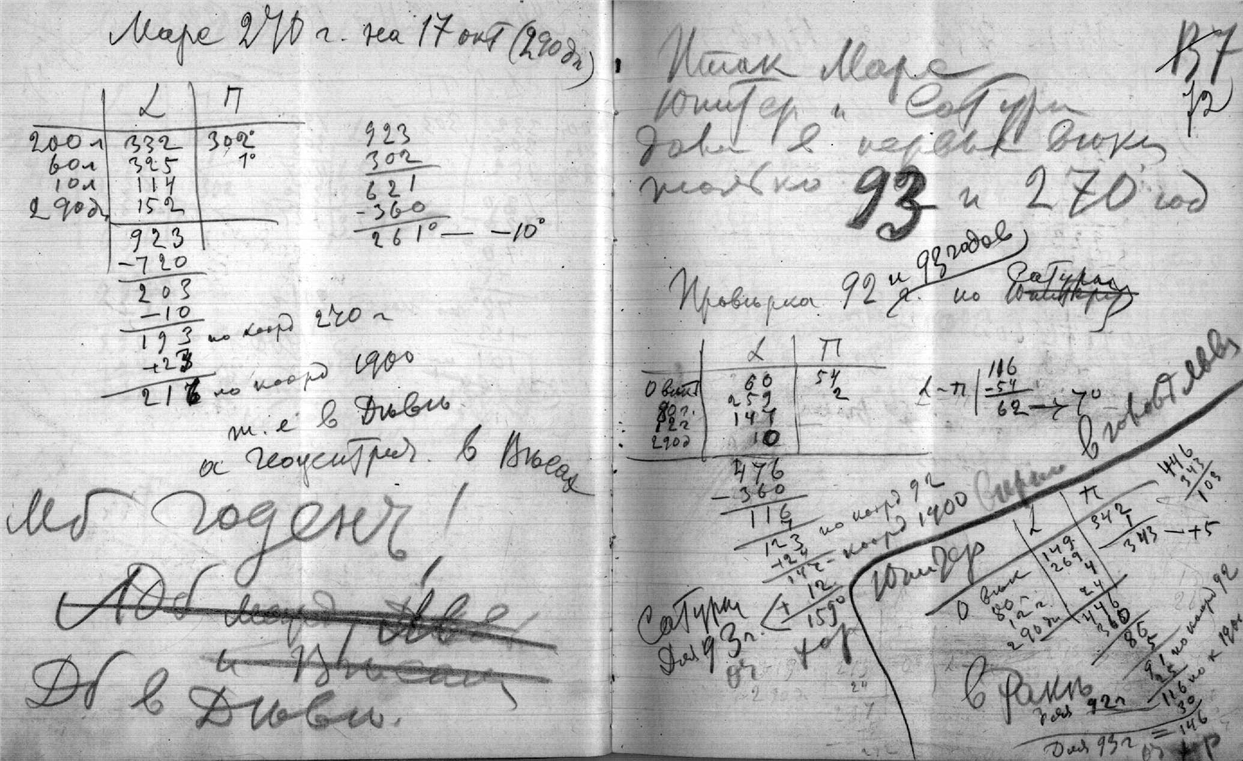 Марс 270 г. на 17 окт (290 дн)
L П
200 л 332 302°
60 л 325 1°
10 л 114
290 дн 152
923
-720
203
-10
193 по коорд 270 г
+23
216 по коорд 1900
т. е в Дѣвѣ
а геоцентрич. в Вѣсах
923
302
621
-360
261° — -10°
Мб годенъ!
Дб в Дѣвѣ.
В7
12
Итак Марс
Юпитер и Сатурн
дали в первые вѣка
только 93 и 270 год
Провѣрка 92 и 93 годов
г. по Сатурну
L П
0 вѣк 60 54
80 г. 259 2
12 г 147
290 д 10
476
-360
116
7
123 по коорд 92
+24
147 - коорд 1900
12
159°
L-П 116
-54
62 → 7°
Сатурн
для 93 г.
оч хор
в голове Льва
Юпитер
L П
0 вѣк 149 342
80 г. 269 1
12 г. 4 343 — +5
290 дн. 24
446
360
86
5
91 по коорд 92
25
116 по к 1900
30
= 146
446
343
103
в Ракѣ
для 92 г
Для 93 г
оч хор